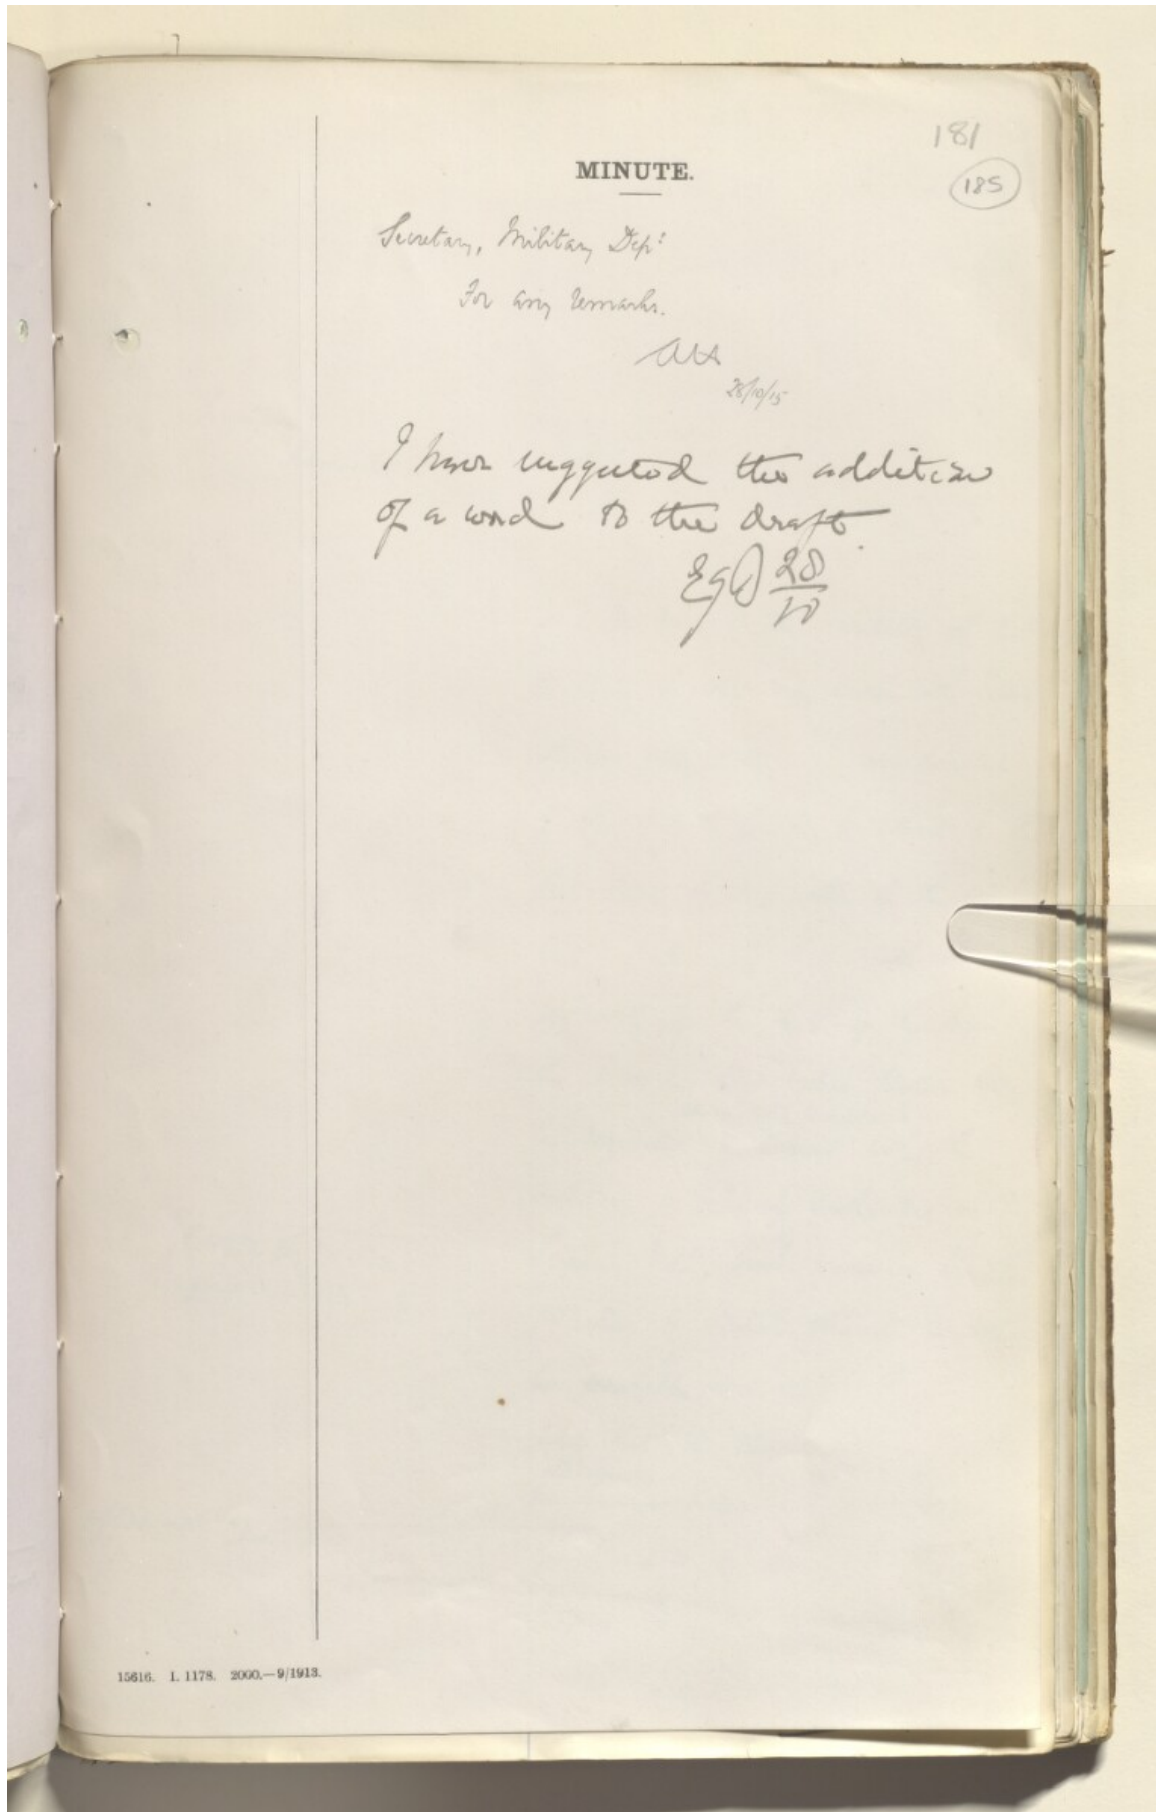 181
185
MINUTE.
Secretary, Military Dept
For any remarks.
28/10/15
I have suggested the addition
of a word to the draft.
28/10
15616. I. 1178. 2000.—9/1913.